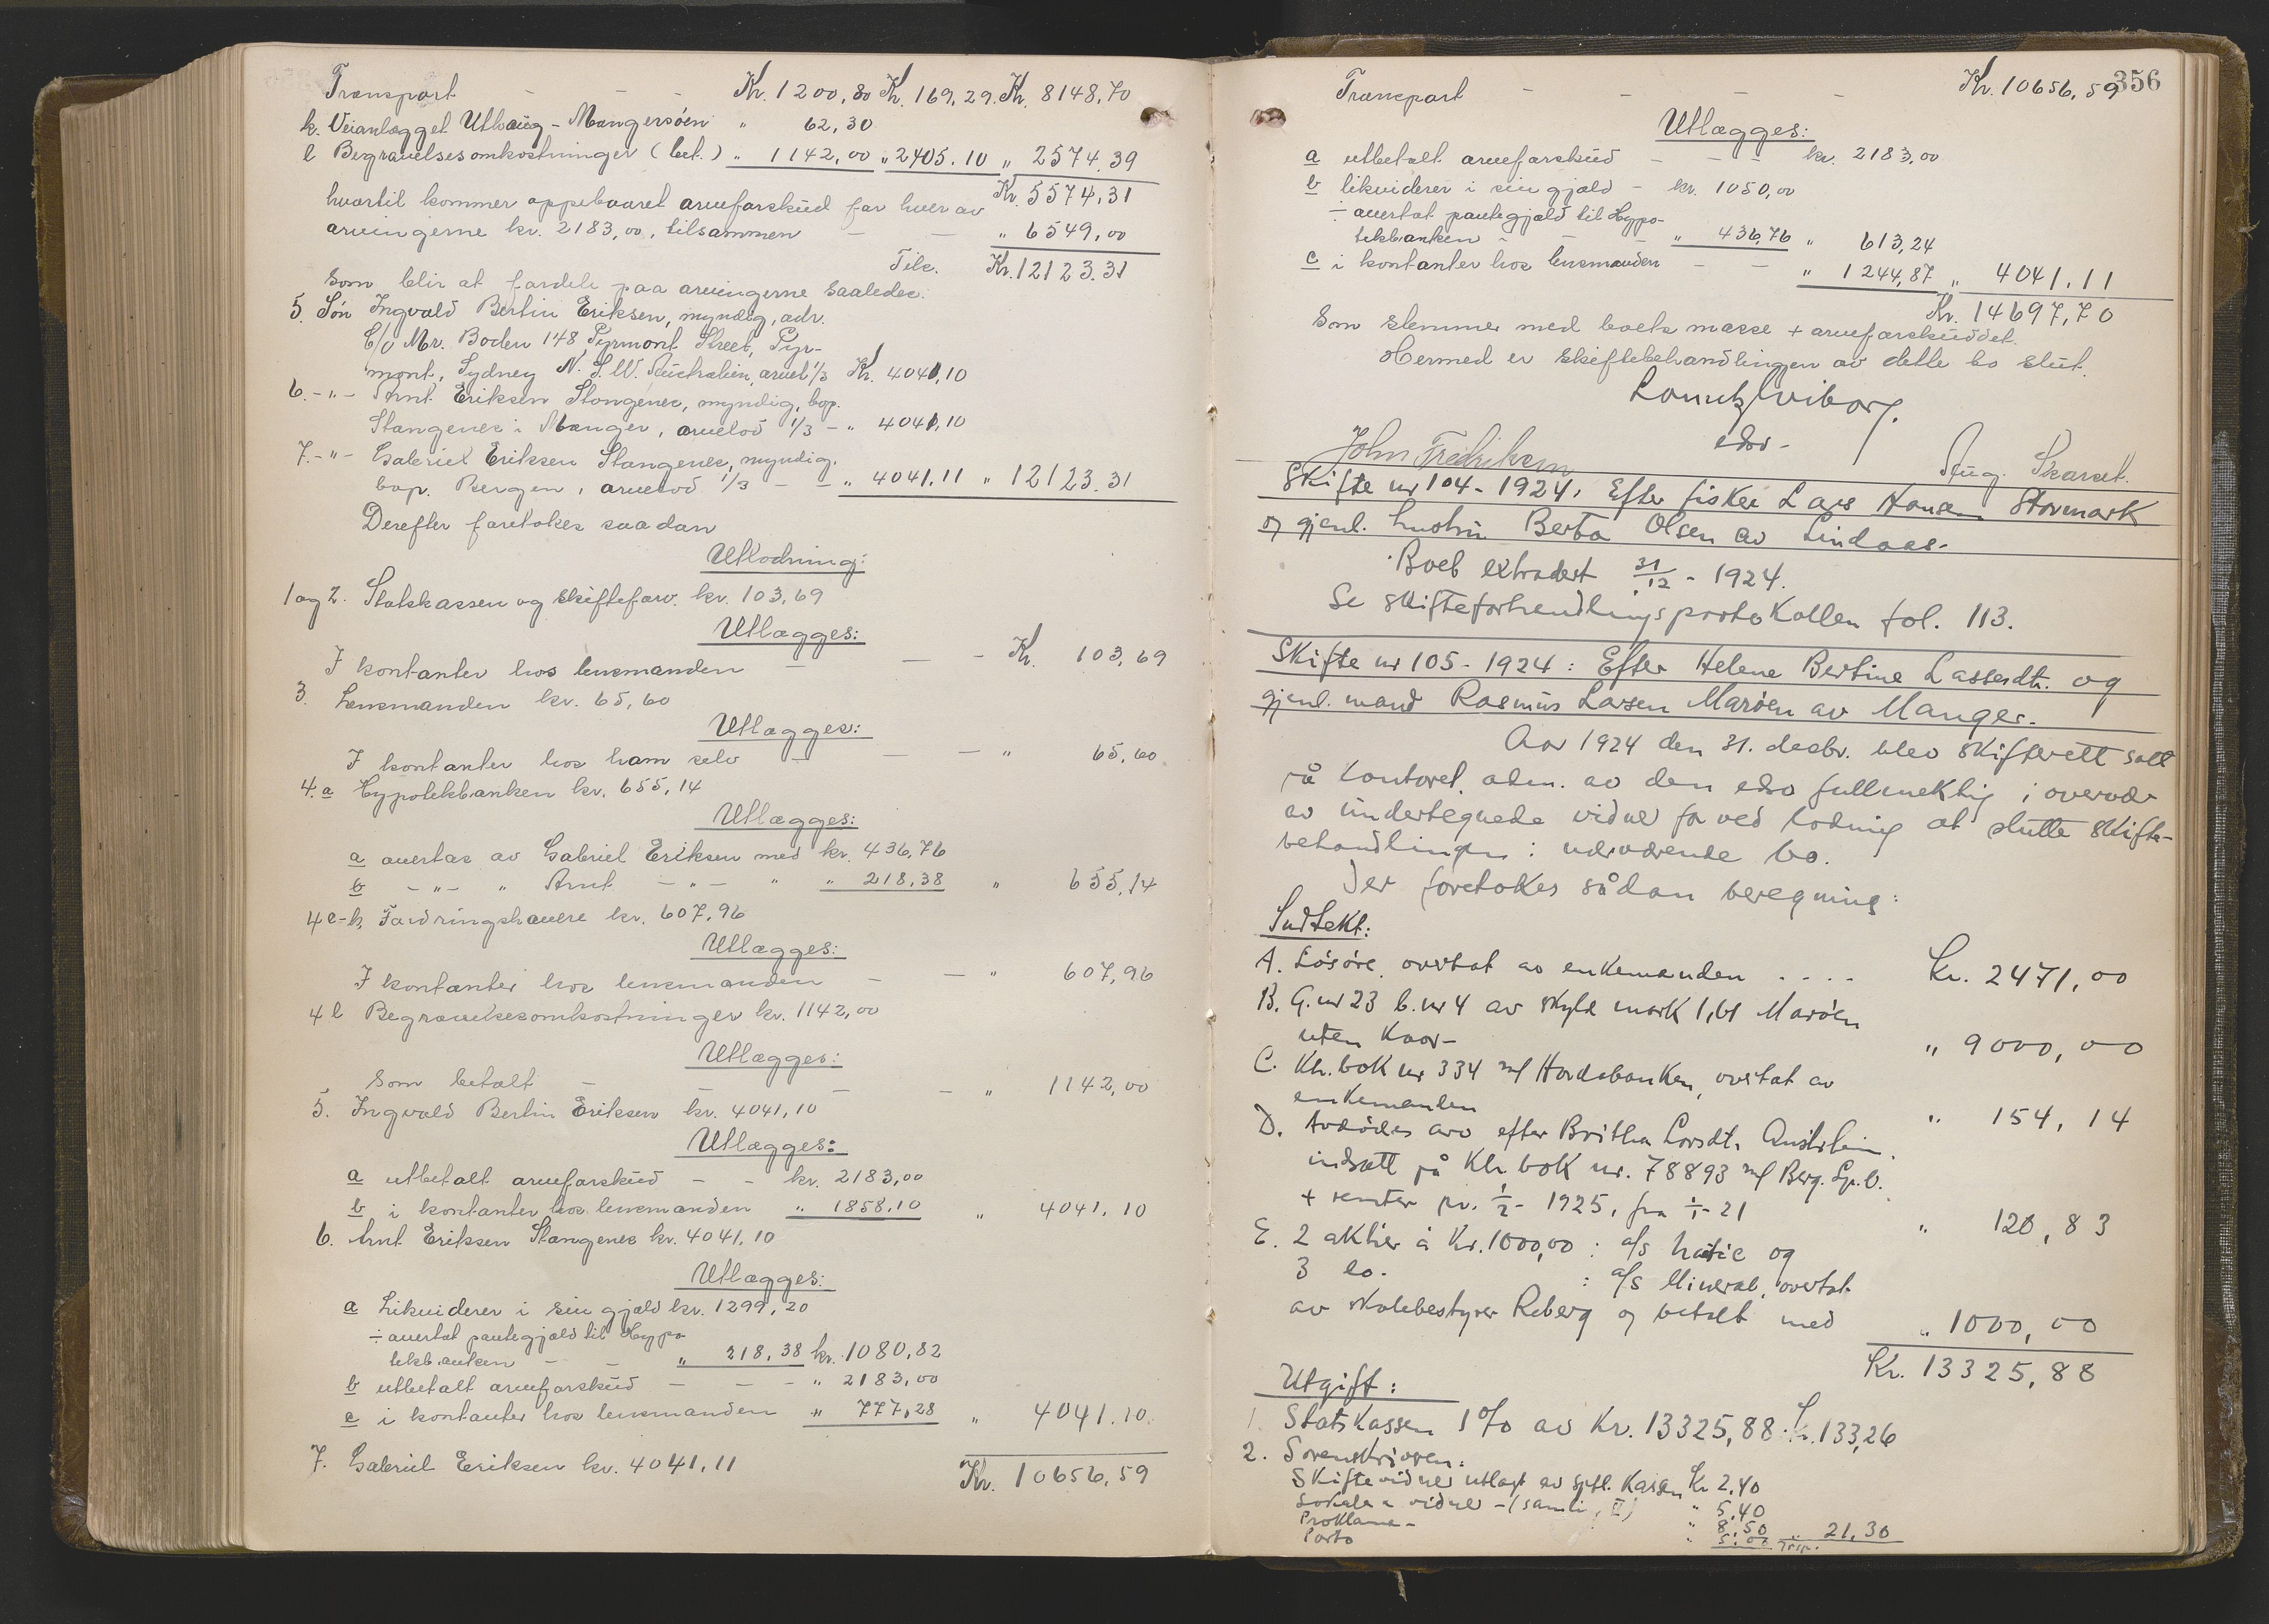 Transport - - - Kr. 1200,80 Kr. 169,29. Kr. 8148,70
k. Veianlægget Uthaug - Mangersøen " 62,30
l Begravelsesomkostninger (bet.) " 1142,00 " 2405.10 " 2574.39
Kr. 5574,31
hvortil kommer oppebaaret arveforskud for hver av
arvingerne kr. 2183,00, tilsammen - - " 6549,00
Tils. Kr. 12123.31
som blir at fordele paa arvingerne saaledes:
5. Søn Ingvald Bertin Eriksen, myndig, adr.
C/o Mr. Boden 148 Pyrmont Street, Pyr-
mont, Sydney N. S. W. Australien, arvel. 1/3 Kr. 4041,10
6. - " - Arnt Eriksen Stangenes, myndig, bop.
Stangenes i Manger, arvelod 1/3 - " 4041,10
7. - " - Gabriel Eriksen Stangenes, myndig,
bop. Bergen, arvelod 1/3 - - " 4041.11 " 12123.31
Derefter foretokes saadan
Utlodning:
1 og 2. Statskassen og skifteforv. kr. 103,69
Utlægges:
I kontanter hos lensmanden - - - Kr. 103,69
3. Lensmanden kr. 65,60
Utlægges:
I kontanter hos ham selv - - - " 65,60
4. a Hypotekbanken kr. 655,14
Utlægges:
a overtas av Gabriel Eriksen med kr. 436,76
b - " - " Arnt - " - " " 218,38 " 655,14
4 c-k, Fordringshavere kr. 607,96
Utlægges:
I kontanter hos lensmanden - - " 607,96
4 l Begravelsesomkostninger kr. 1142,00
Utlægges:
Som betalt - - - - " 1142,00
5. Ingvald Bertin Eriksen kr. 4041,10
Utlægges:
a utbetalt arveforskud - - kr. 2183,00
b i kontanter hos lensmanden " 1858,10 " 4041,10
6. Arnt Eriksen Stangenes kr. 4041,10
Utlægges:
a Likviderer i sin gjæld kr. 1299,20
÷ overtat pantegjæld til Hypo-
tekbanken - - " 218,38 kr. 1080,82
b utbetalt arveforskud - - - " 2183,00
c i kontanter hos lensmanden " 777,28 " 4041.10.
7. Gabriel Eriksen kr. 4041,11
Kr. 10656,59
356
Transport - - - - Kr. 10656,59
Utlægges:
a utbetalt arveforskud - - - kr. 2183,00
b likviderer i sin gjæld - kr. 1050,00
÷ overtat pantegjæld til Hypo-
tekbanken - - - " 436,76 " 613,24
c i kontanter hos lensmanden - - " 1244,87 " 4041,11
Kr. 14697,70
Som stemmer med boets masse + arveforskuddet.
Hermed er skiftebehandlingen av dette bo slut.
edsv-
John Fredriksen
Aug. Skarset.
Skifte nr 104 - 1924: Efter fisker Lars Hansen Stormark
og gjenl. hustru Berta Olsen av Lindaas.
Boet extradert 31/12 - 1924.
Se skifteforhandlingsprotokollen fol. 113.
Skifte nr 105 - 1924: Efter Helene Bertine Lassesdtr. og
gjenl. mand Rasmus Larsen Marøen av Manger.
Aar 1924 den 31. desbr. blev skifterett satt
på kontoret, adm. av den edsv fullmektig i overvær
av undertegnede vidner for ved lodning at slutte skifte-
behandlingen i nærværende bo.
Der foretokes sådan beregning:
Indtekt:
A. Løsøre, overtat av enkemanden .... Kr. 2471,00
B. G.nr 23 b.nr 4 av skyld mark 1,61 Marøen
uten kaar - " 9000,00
C. Ktr. bok nr 334 m/ Hordabanken, overtat av
enkemanden " 154,14
D. Avdødes arv efter Britha Larsdtr.
indsatt på Ktr. bok nr. 78893 m/ Berg. Sp.b.
+ renter pr. 1/2 - 1925, fra 1/1 - 21 " 120,83
E. 2 aktier à Kr. 1000,00 i a/s og
3 do. i a/s Mineral, overtat
av skolebestyrer Reberg og betalt med " 1000,00
Kr. 13325,88
Utgift:
1. Statskassen 1% av Kr. 13325,88 Kr. 133,26
2. Sorenskriveren:
Skiftevidner utlagt av off. kassen Kr 2,40
Lokale & vidner - " 5,40
Proklama - " 8,50
Porto " 5,00 " 21,30
Trsp.